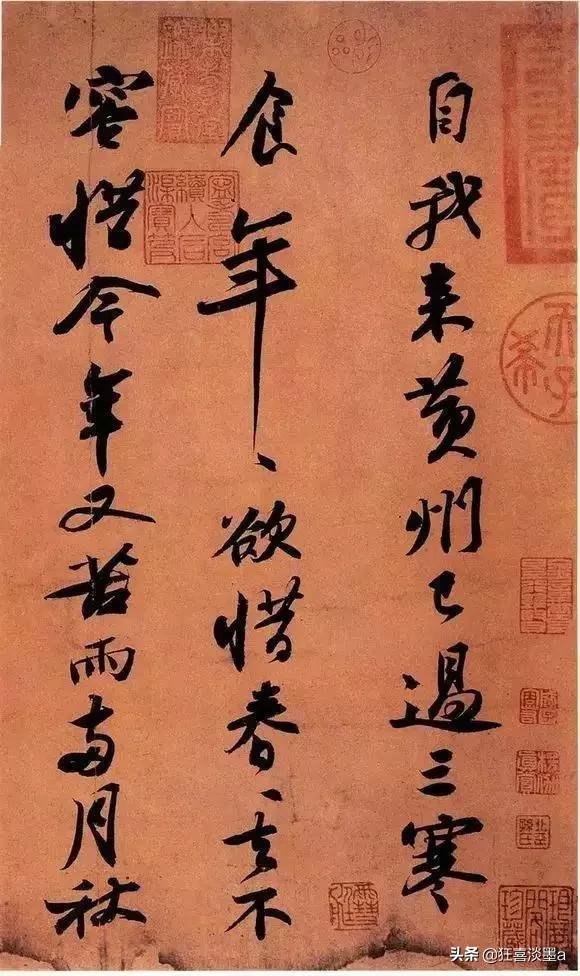 自我来黄州已過三寒
食年〻欲惜春〻去不
容惜今年又苦雨兩月秋
头条 @狂喜淡墨a